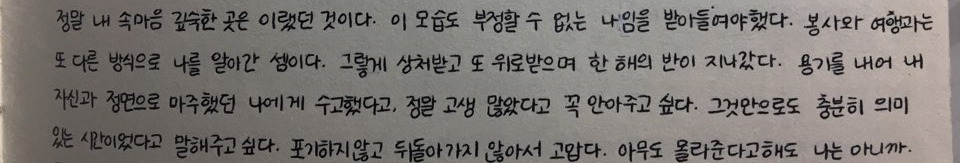 정말 내 속마음 깊숙한 곳은 이랬던 것이다. 이 모습도 부정할 수 없는 나임을 받아들여야했다. 봉사와 여행과는
또 다른 방식으로 나를 알아간 셈이다. 그렇게 상처받고 또 위로받으며 한 해의 반이 지나갔다. 용기를 내어 내
자신과 정면으로 마주했던 나에게 수고했다고, 정말 고생 많았다고 꼭 안아주고 싶다. 그것만으로도 충분히 의미
있는 시간이었다고 말해주고 싶다. 포기하지않고 뒤돌아가지 않아서 고맙다. 아무도 몰라준다고해도 나는 아니까.